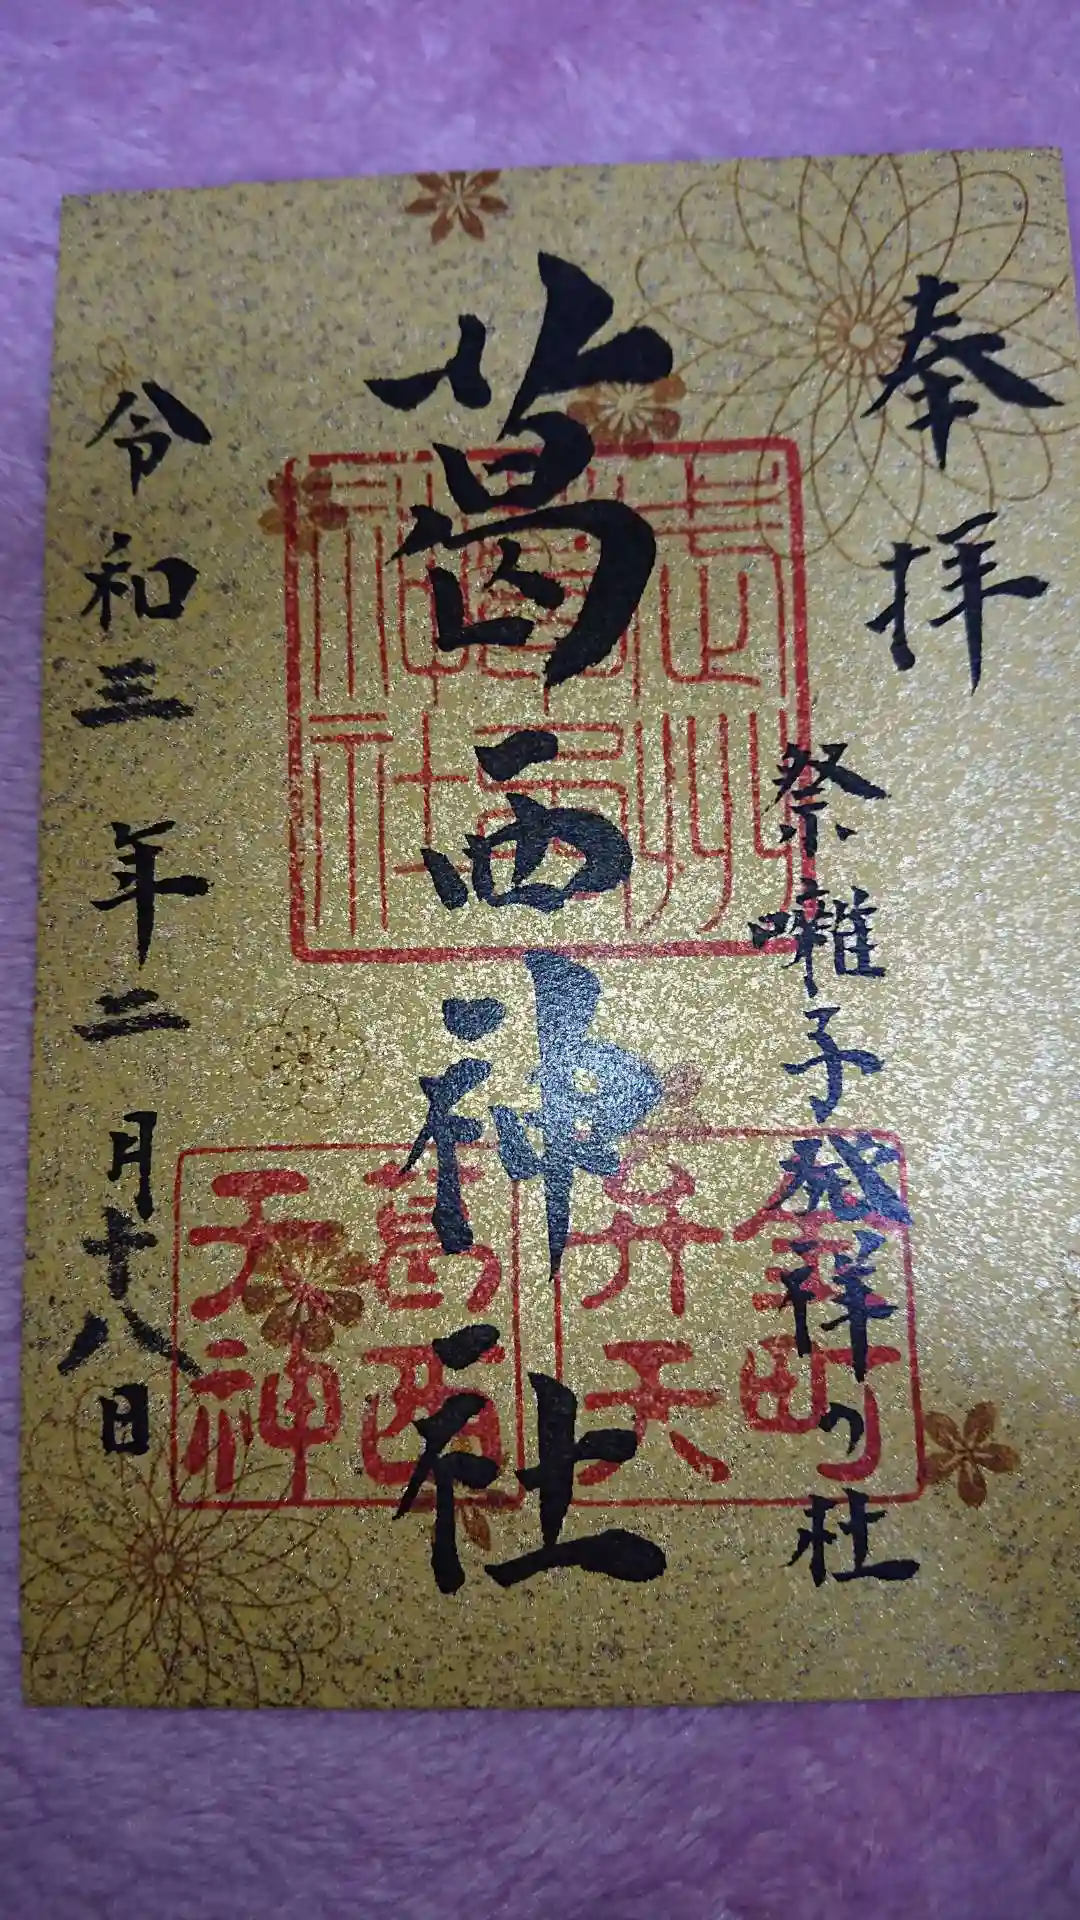 奉拝
祭囃子発祥の社
葛西神社
令和三年二月十八日
金町
弁天
葛西
天神